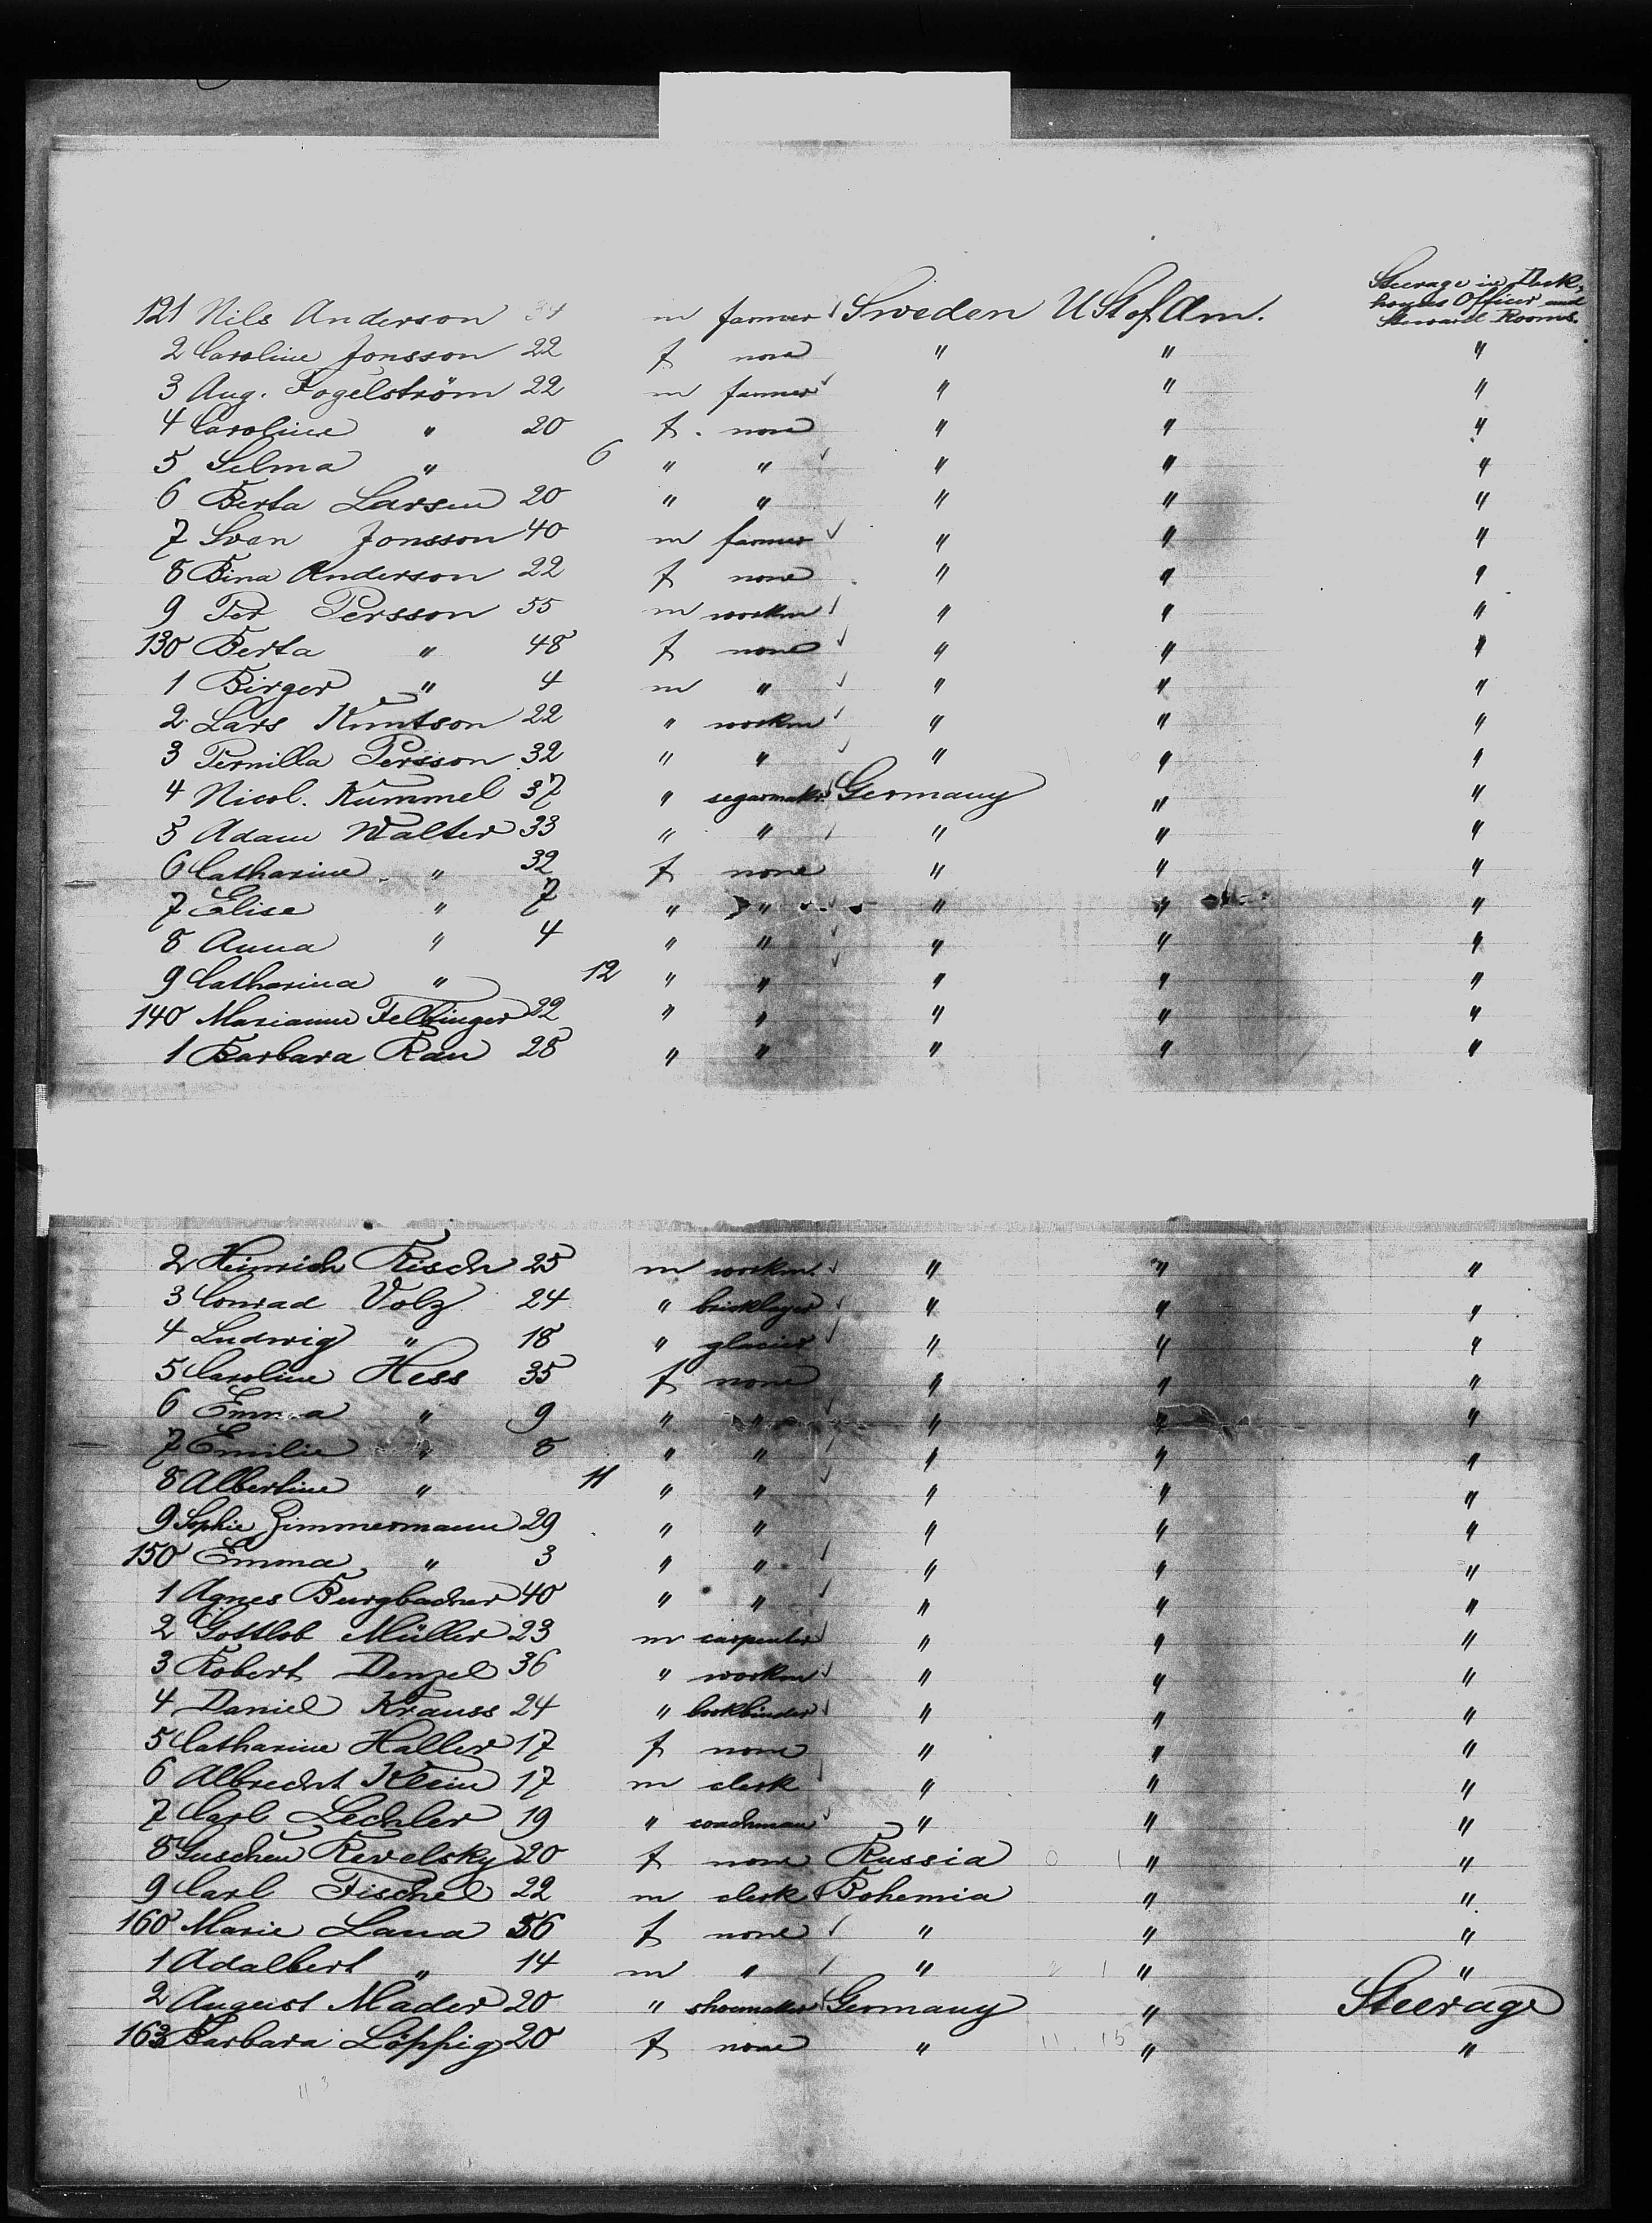 Steerage in Deck-
houses Officer and
Steward Rooms.
121 Nils Anderson 34 m farmer Sweden U St of Am.
2 Caroline Jonsson 22 f none " " "
3 Aug. Fogelström 22 m farmer " " "
4 Caroline " 20 f. none " " "
5 Selma " 6 " " " " "
6 Berta Larsen 20 " " " " "
7 Sven Jonsson 40 m farmer " " "
8 Bina Anderson 22 f none " " "
9 Per Persson 55 m workm " " "
130 Berta " 48 f none " " "
1 Birger " 4 m " " " "
2 Lars Knutson 22 " workm " " "
3 Pernilla Persson 32 " " " " "
4 Nicol. Kummel 37 " segarmakr Germany " "
5 Adam Walter 33 " " " " "
6 Catharine " 32 f none " " "
7 Elise " 7 " " " " "
8 Anna " 4 " " " " "
9 Catharina " 12 " " " " "
140 Marianne Felbinger 22 " " " " "
1 Barbara Rau 28 " " " " "
2 Heinrich Risch 25 m workm. " " "
3 Conrad Volz 24 " bricklayer " " "
4 Ludwig " 18 " glacier " " "
5 Caroline Hess 35 f none " " "
6 Emma " 9 " " " " "
7 Emilie " 8 " " " " "
8 Albertine " 11 " " " " "
9 Sophie Zimmermann 29 " " " " "
150 Emma " 3 " " " " "
1 Agnes Burgbacher 40 " " " " "
2 Gottlob Müller 23 m carpenter " " "
3 Robert Denzel 36 " workm " " "
4 Daniel Krauss 24 " bookbinder " " "
5 Catharine Haller 17 f none " " "
6 Albrecht Klein 17 m clerk " " "
7 Carl Lechler 19 " coachman " " "
8 Guschen Revelsky 20 f none Russia " "
9 Carl Fischel 22 m clerk Bohemia " "
160 Marie Lana 56 f none " " "
1 Adalbert " 14 m " " " "
2 August Mader 20 " shoemaker Germany " Steerage
163 Barbara Löppig 20 f none " " "